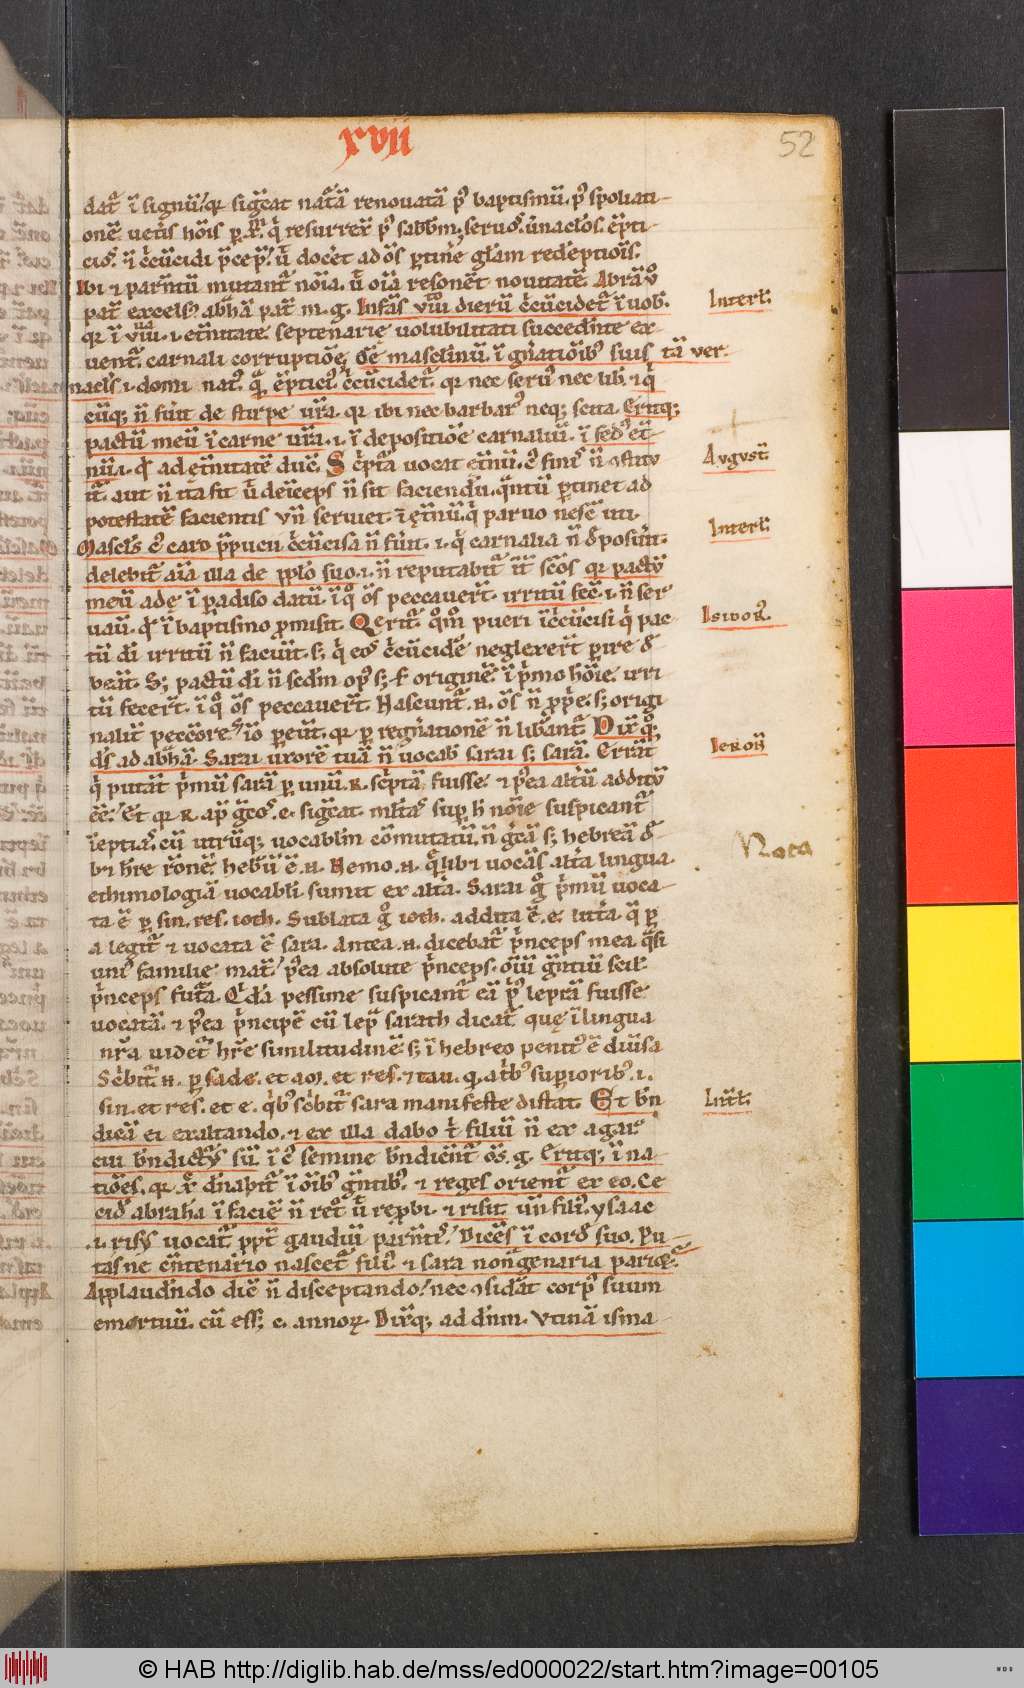 xvii
52
dat᷑ ī signū / qr̄ sig̅cat nat᷑ā renouatā p᷑ baptismū. p᷑ spoliati-
onē uet̄is hōis p x̄m q̇ resurrex̄ p᷑ sabb̄m.
cios. ⁊ ċcūcidi p̄cep̄. ū docet ad ōs ptinē gl̄am redēptiōis.
Ibi ⁊ parn̄tū mutant᷑ nōia. ū oīa resonēt nouitatē. Abrāꝰ
pat᷑ excelsꝰ abhā pat᷑ m. g. Infās viii dierū ċcūcidet᷑ ī uob̄.
qr̄ ī viii. .i. et̄nitate septenarię uolubilitati succedente ex-
uent᷑ carnali corruptiōe. Oē masclinū. ī gn̄atiōibꝰ suis tā ver-
naclꝰs .i. domi natꝰ. q̄ ēpticiꝰ ċcūcidet᷑ qr̄ nec seruꝰ nec lib̄. ⁊ q̇
cūqꝫ n̄ fūit de stirpe ur̄a. qr̄ ibi nec barbarꝰ neqꝫ scita. Eritqꝫ
pactū meū ī carne ur̄a. .i. ī depositiōe carnaliū. ī fedꝰ et̄-
nū .i. q̇ ad et̄nitatē ducē. Sċptā uocat et̄nū. c̄ finis n̄ ↄstitu
it᷑. aut n̄ ita fit ū deīceps n̄ sit faciendū. q̄ntū ptinet ad
potestatē facientis vn̄ seruiet ī et̄nū. q̇ paruo nescit uti.
Masclꝰs cꝰ caro p̄pucii ċcūcisa n̄ fūit .i. q̇ carnalia n̄ dposūit.
delebit᷑ aīa illa de pplō suo .i. n̄ reputabit᷑ int᷑ scōs qr̄ pactū
meū adę ī padiso datū. ī q̊ ōs peccauert̄. irritū fec̄ .i. n̄ ser
uau. q̇ ī baptismo p̄misit. Qerit᷑ q̊m̊ pueri īċcūcisi q̇ pac-
tū di irritū n̄ faciūt. sꝫ q̇ eos ċcūcidē neglexert̄ pire d
beāt. Sꝫ pactū di n̄ sedm opꝰ sꝫ f originē. ī p̄mo hōie. irri
tū fecert̄. ī q̊ ōs peccauert̄. Nascunt᷑. n. ōs n̄ pp̄e. sꝫ origi
nalit̄ peccōres īo peūt. qr̄ p regn̄ationē n̄ lib̄ant᷑ Dix̄qꝫ
d̄s ad abhā. Sarai uxorē tuā n̄ uocab̄ sarai sꝫ sarā. Errāt
q̇ putāt p̄mū sarā p unū .R. sc̄ptā fuisse. ⁊ p̄ea altū additū
cē.
īeptiaſ. cū utrūqꝫ uocablm cōmutatū. n̄ gr̄cā sꝫ hebreā d
b; hr̄e rōnē. hebrū ē. n. Nemo. n. q̄libet uocās alia lingua.
ethimologiā uocabli sumit ex alia. Sarai g̊ p̄mū uoca-
ta ē p sin. res. ioth. Sublata g̊ ioth. addita ē .e. litt̄a. q̄ p
a legit᷑ ⁊ uocata ē sara. Antea .n. dicebat᷑ p̄nceps mea. q̄si
uniꝰ familie mat᷑. p̄ea absolute p̄nceps. oīū gn̄tiū scił
p̄nceps fut̄a. Q̇dā pessime suspicant᷑ eā p᷑ leprā fuisse
uocatā. ⁊ p̄ea p̄ncipē cū lep̄ sarath dicat᷑ quę ī lingua
nr̄a uidet᷑ hr̄e similitudinē. sꝫ ī hebreo penitꝰ ē diūsa
Sc̄bit᷑ .n. p sade. et ao. et res. ⁊ tau. q. at̄bꝰ supioribꝰ .i.
sin. et res. et e. q̇bꝰ sc̄bit᷑ sara manifeste distat. Et bn̄
dicā ei exaltando. ⁊ ex illa dabo t̄ filiū n̄ ex agar
cui bn̄dictꝰs sū. ī cꝰ semine bn̄diēnt᷑ ōs. g. Eritqꝫ ī na-
tiōes. qr̄ xr̄ dn̄abit᷑ ī oībꝰ gn̄tibꝰ. ⁊ reges orient᷑ ex eo. Ce
cid̄ abrahā ī faciē n̄ ret̊ ū rep̄bi. ⁊ risit un̄ filiꝰ. ysaac
.i. risꝰs uocat᷑ ppt̄ gaudiū parn̄tis. Dicēs ī cord̄ suo. Pu-
tasne cn̄tenario nascet᷑ filiꝰ ⁊ sara nongenaria pariet.
Applaud̄ndo dic̄ n̄ disceptando. nec ↄsid̄at corpꝰ suum
emortuū. cū ess; c. annoꝝ. Dix̄qꝫ ad dn̄m. Vtinā isma-
Interł.
Avgvst̄
Interł.
Isidorꝰ.
Ieron̄
Nota
Litt̄ł.
© HAB http://diglib.hab.de/mss/ed000022/start.htm?image=00105